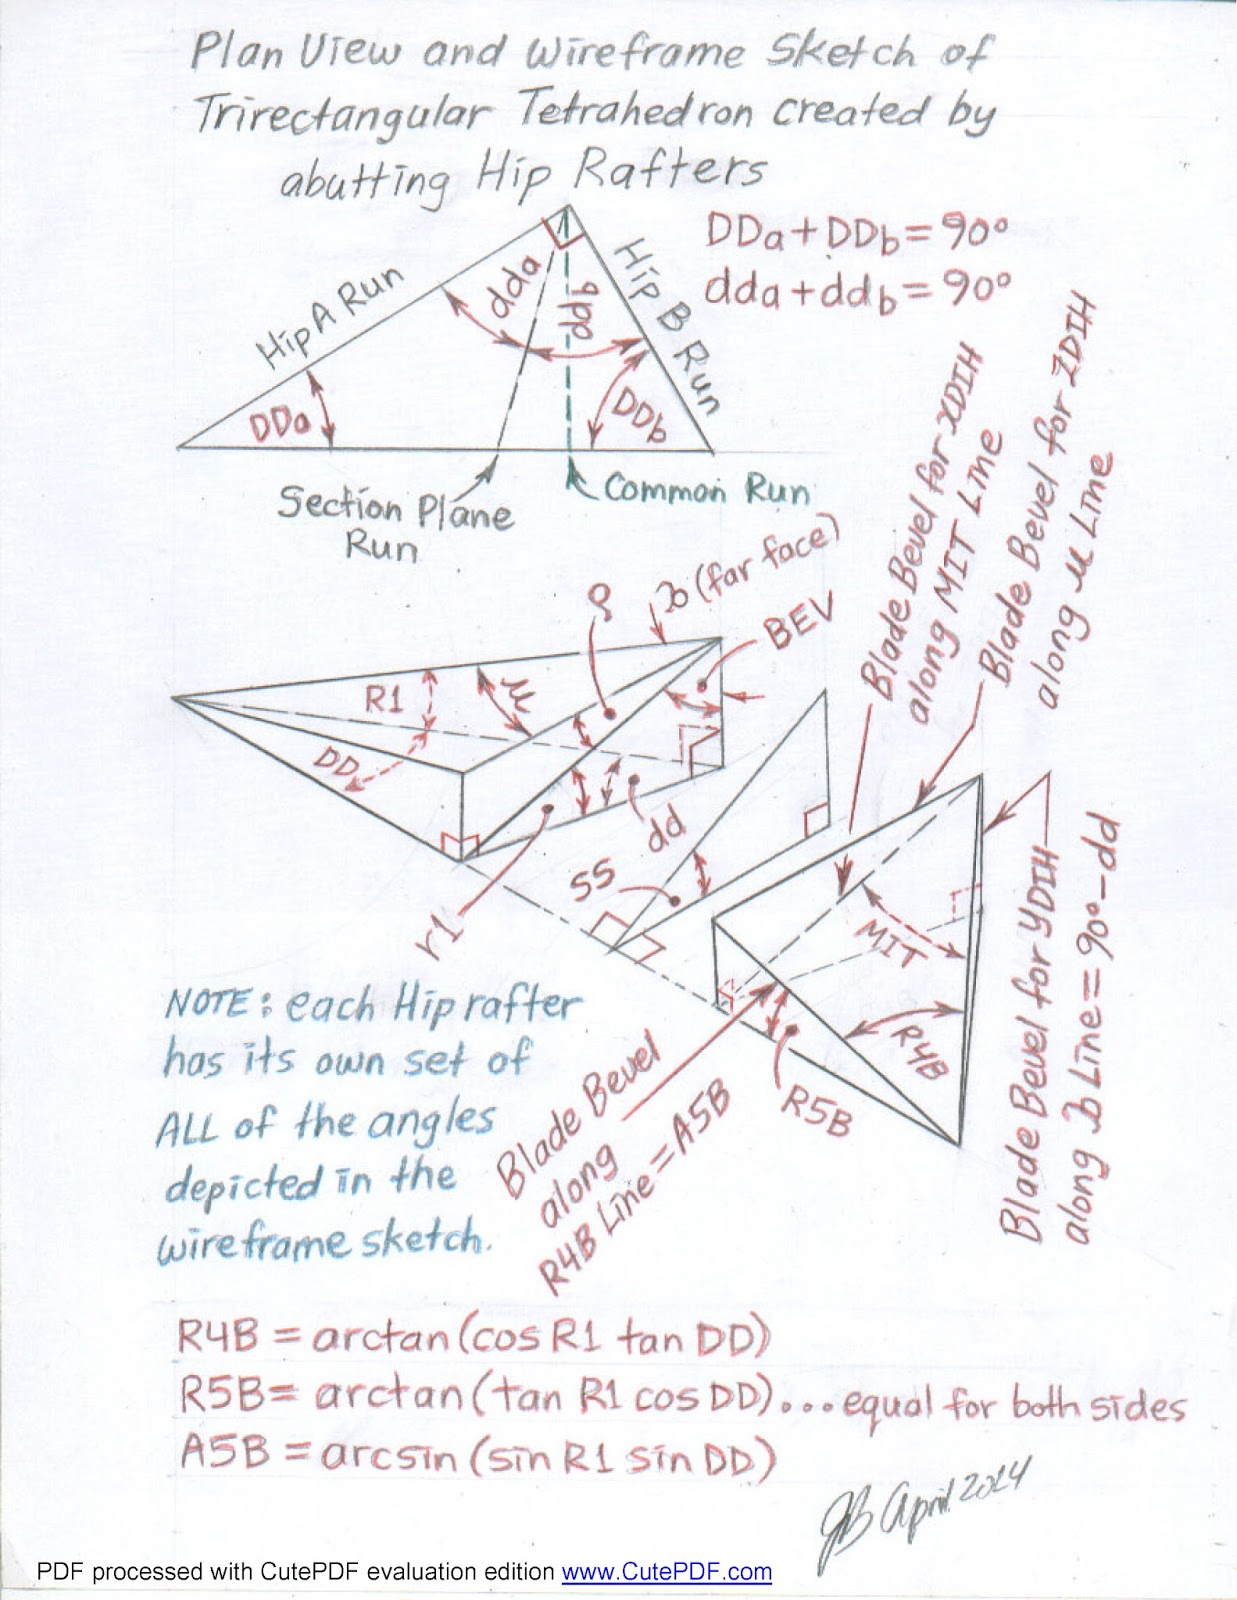 Plan View and Wireframe Sketch of
Trirectangular Tetrahedron created by
abutting Hip Rafters
DDa + DDb = 90°
dda + ddb = 90°
Hip A Run
Hip B Run
dda
ddb
DDa
DDb
Section Plane
Run
Common Run
Blade Bevel for XDIH
along MIT Line
Blade Bevel for ZDIH
along μ Line
(far face)
BEV
R1
μ
DD
dd
SS
r1
MIT
R4B
R5B
Blade Bevel for YDIH
along Line = 90° - dd
Blade Bevel
along
R4B Line = A5B
NOTE: each Hip rafter
has its own set of
ALL of the angles
depicted in the
wireframe sketch.
R4B = arctan (cos R1 tan DD)
R5B = arctan (tan R1 cos DD)...equal for both sides
A5B = arcsin (sin R1 sin DD)
JB April 2014
PDF processed with CutePDF evaluation edition www.CutePDF.com